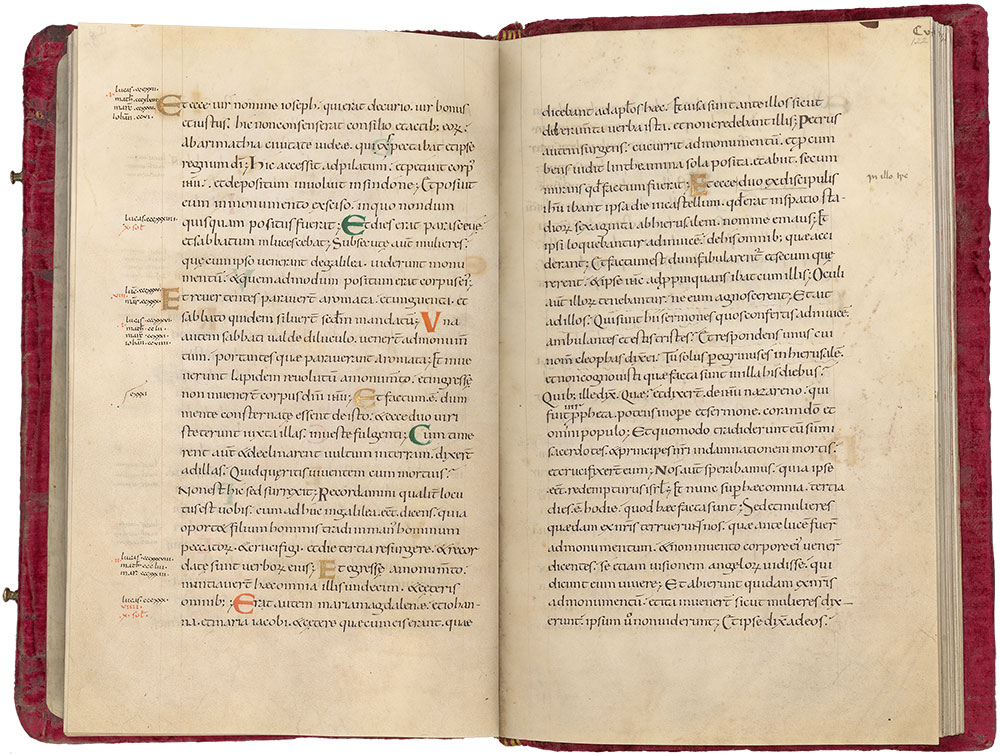 Et ecce uir nomine ioseph. qui erat decurio. uir bonus
et iustus. hic non consenserat consilio et actib; eorꝝ.
ab arimathia ciuitate iudeæ. qui expectabat et ipse
regnum dī; hic accessit ad pilatum. et petiit corp᾽
ihū. et depositum inuoluit in sindone; Et posuit
eum in monumento exciso. in quo nondum
quisquam positus fuerat; Et dies erat parasceue
et sabbatum inlucescebat; Subsecutę aut̄ mulieres.
quę cum ipso venerant de galilea. viderunt monu
mentū. & quemadmodum positum erat corpus ei᾽;
Et reuertentes parauer̄ aromata. et unguenta. et
sabbato quidem siluer̄t sed̄m mandatū; Vna
autem sabbati ualde diluculo. uener̄t ad monum̄
tum. portantes quæ parauerant aromata; Et inue
nerunt lapidem reuolutū a monum̄to. et ingressę
non inuener̄t corpus dn̄i ihū; Et factum ē. dum
mente consternatę essent de isto. & ecce duo uiri
steterunt iuxta illas. in ueste fulgenti; Cum time
rent aut̄. & declinarent uultum in terram. dixer̄t
ad illas. Quid queritis uiuentem cum mortuis?
Non est hic sed surrexit; Recordamini qualit̄ locu
tus est uobis. cum adhuc in galilea eēt. dicens. quia
oportet filium hominis tradi in man᾽ hominum
peccatorꝝ. & crucifigi. et die tertia resurgere. & recor
datę sunt verborꝝ eius; Et egressę a monum̄to.
nuntiauer̄t hæc omnia illis undecim. & cęteris
omnib; Erat autem maria magdalenæ. et iohan
na. et maria iacobi. & cętere quæ cum eis erant. quæ
lucas. ccxxxiii.
x. sol̄.
Cv
122
dicebant ad apl̄os hæc. Et uisi sunt ante illos sicut
deleramenta uerba ista. et non credebant illis; Petrus
autem surgens. cucurrit ad monumentū. et p̄cum
bens uidit linthеamina sola posita. et abiit. secum
mirans qđ factum fuerat; Et ecce duo ex discipulis
ihū ibant ipsa die in castellum. qđ erat in spatio sta
diorꝝ sexaginta ab hierusalem. nomine emaus; Et
ipsi loquebantur ad inuicē. de his omnib; quæ acci
derant; Et factum est dum fabularent᾽ et secum quę
rerent. & ipse ihs̄ adp̄pinquans ibat cum illis; Oculi
aut̄ illorꝝ tenebantur. ne eum agnoscerent; Et ait
ad illos. Qui sunt hi sermones quos confertis ad inuicē
ambulantes et estis tristes? Et respondens unus cui
nom̄ cleophas dixit ei. Tu solus peregrinus es in hierusalē.
et non cognouisti quæ facta sunt in illa his diebus?
Quib; ille dix̄. Quæ? et dixer̄t. de ihū nazareno. qui
fuit uir p̄pheta. potens in opere et sermone. coram dō et
omni populo; Et quomodo tradiderunt eū sum̄i
sacerdotes. & principes nr̄i in damnationem mortis.
et crucifixer̄t eum; Nos aut̄ sperabamus. quia ipse
eēt redempturus isrl̄; Et nunc sup̄ hæc omnia. tertia
dies ē hodie. quod hæc facta sunt; Sed et mulieres
quædam ex nr̄is terruer̄ nos. quæ ante lucē fuer̄
ad monumentum. & non inuento corpore ei᾽ uener̄
dicentes. se etiam uisionem angelorꝝ uidisse. qui
dicunt eum uiuere; Et abierunt quidam ex nr̄is
ad monumentū. et ita inuener̄t sicut mulieres dixe_
erunt. ipsum ū non uiderunt; Et ipse dix̄ ad eos.